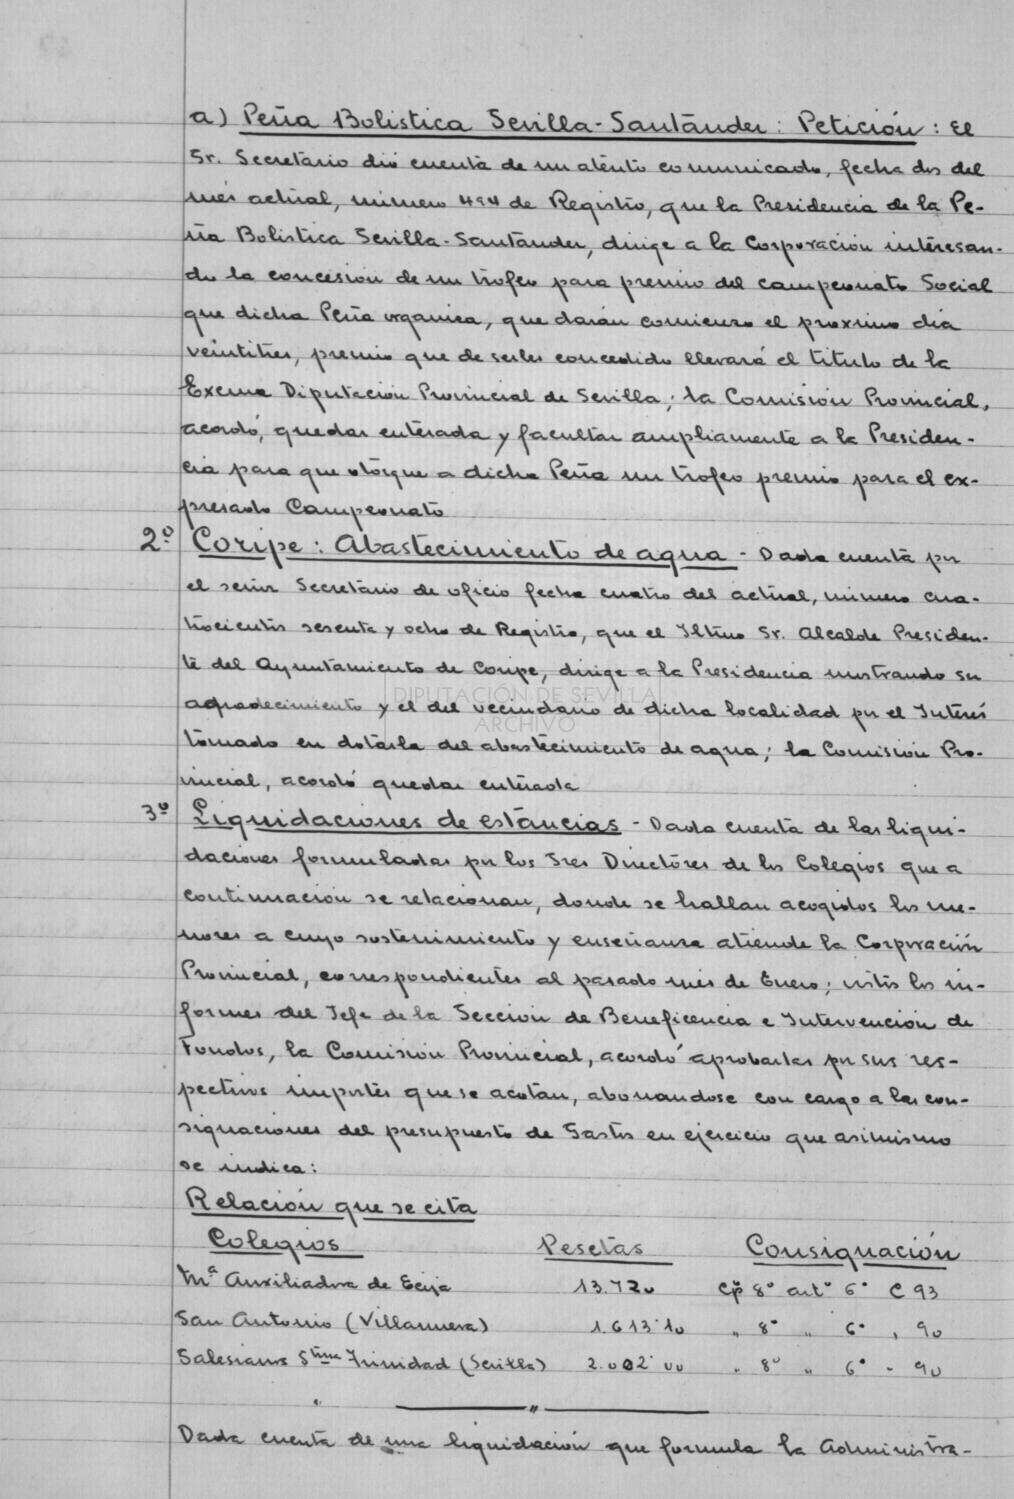 a) Peña Bolistica Sevilla-Santander: Petición: El
Sr. Secretario dió cuenta de un atento comunicado, fecha dos del
mes actual, número 494 de Registro, que la Presidencia de la Pe-
ña Bolistica Sevilla-Santander, dirige a la Corporación interesan-
do la concesión de un trofeo para premio del campeonato Social
que dicha Peña organiza, que darán comienzo el proximo día
veintitres, premio que de serles concedido llevará el titulo de la
Excma Diputación Provincial de Sevilla; la Comisión Provincial,
acordó, quedar enterada y facultar ampliamente a la Presiden-
cia para que otorgue a dicha Peña un trofeo premio para el ex-
presado Campeonato
2º Coripe: Abastecimiento de agua - Dada cuenta por
el señor Secretario de oficio fecha cuatro del actual, número cua-
trocientos sesenta y ocho de Registro, que el Iltmo Sr. Alcalde Presiden-
te del Ayuntamiento de Coripe, dirige a la Presidencia mostrando su
agradecimiento y el del vecindario de dicha localidad por el Interés
tomado en dotarla del abastecimiento de agua; la Comisión Pro-
vincial, acordó quedar enterada
DIPUTACIÓN DE SEVILLA
ARCHIVO
3º Liquidaciones de estancias - Dada cuenta de las liqui-
daciones formuladas por los Sres Directores de los Colegios que a
continuación se relacionan, donde se hallan acogidos los me-
nores a cuyo sostenimiento y enseñanza atiende la Corporación
Provincial, correspondientes al pasado mes de Enero; vistos los in-
formes del Jefe de la Sección de Beneficencia e Intervención de
Fondos, la Comisión Provincial, acordó aprobarlas por sus res-
pectivos importes que se acotan, abonandose con cargo a las con-
signaciones del presupuesto de Gastos en ejercicio que asimismo
se indica:
Relación que se cita
Colegios Pesetas Consignación
Mª Auxiliadora de Ecija 13.720 Cpº 8º artº 6º C 93
San Antonio (Villanueva) 1.613'10 " 8º " 6º " 90
Salesianos Stma Trinidad (Sevilla) 2.002'00 " 8º " 6º " 90
"
Dada cuenta de una liquidación que formula la Administra-